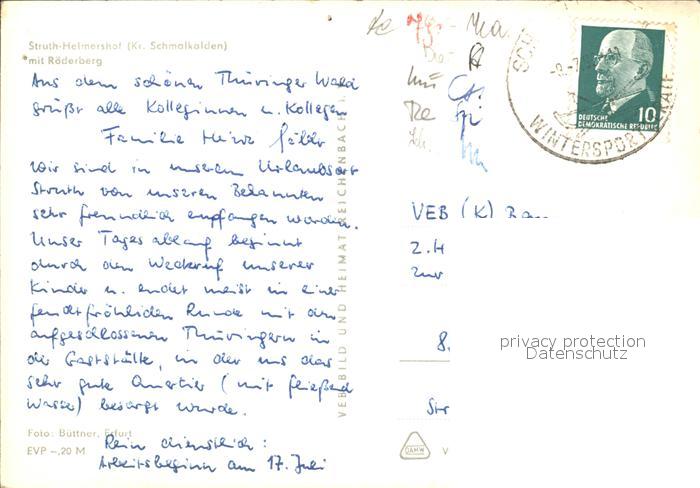 Struth-Helmershof (Kr. Schmalkalden)
mit Röderberg
Aus dem schönen Thüringer Wald
grüßt alle Kolleginnen u. Kollegen
Familie Heinz
Wir sind in unserem Urlaubsort
Struth von unseren Bekannten
sehr freundlich empfangen worden.
Unser Tagesablauf beginnt
durch den Weckruf unserer
Kinder u. endet meist in einer
feuchtfröhlichen Runde mit den
aufgeschlossenen Thüringern in
der Gaststätte, in der uns das
sehr gute Quartier (mit fließend
Wasser) besorgt wurde.
Rein dienstlich:
Arbeitsbeginn am 17. Juli
Foto: Büttner, Erfurt
EVP -,20 M
VEB BILD UND HEIMAT REICHENBACH
DEUTSCHE
DEMOKRATISCHE REPUBLIK
10
WINTERSPORT
VEB (K) Ba
2. H
zur
8.
Str
privacy protection
Datenschutz
DAMW
V